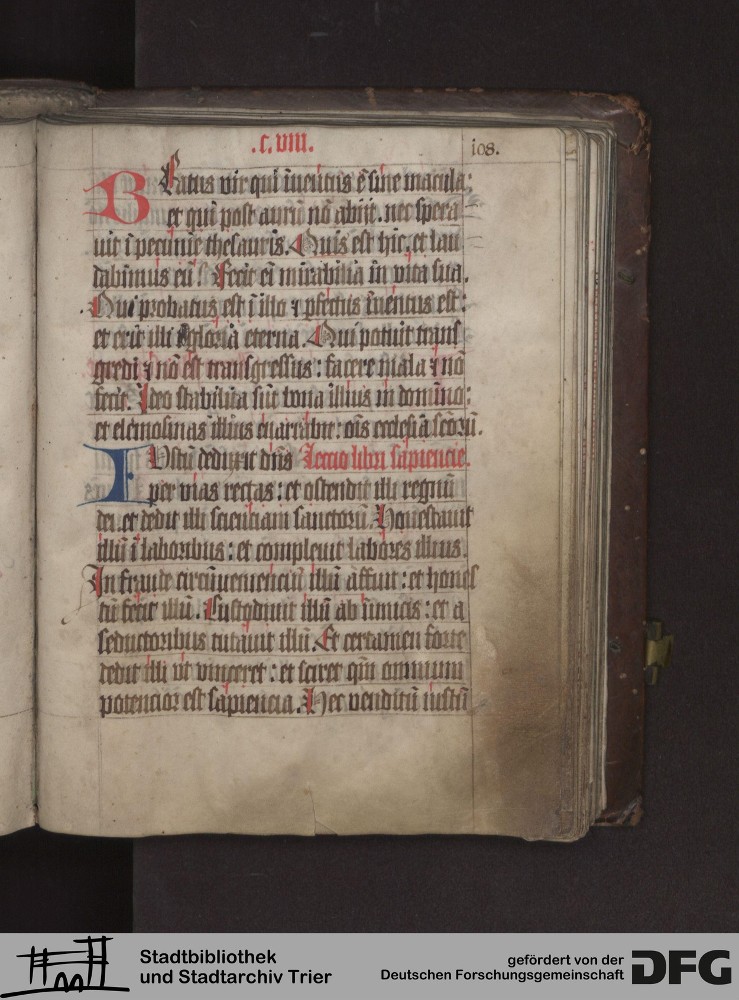 .c.viii.
108.
Beatus vir qui īuentus ē sine macula;
et qui post aurū nō abijt. nec spera
uit ī pecunie thesauris. Quis est hic. et lau
dabimus eū? Fecit ei mirabilia in vita sua.
Qui probatus est ī illo ⁊ ꝑfectus īuentus est:
et erit illi gloria eterna. Qui potuit trans
gredi ⁊ nō est transgressus: facere mala ⁊ nō
fecit. Ideo stabilita sūt bona illius in domino:
et elemosinas illius enarrabit: oīs ecclesia scōrū.
IUstū deduxit dn̄s Lectio libri sapiencie.
per vias rectas: et ostendit illi regnū
dei. et dedit illi scienciam sanctorū. Honestauit
illū ī laboribus: et compleuit labores illius.
In fraude circūueniencīū illū affuit: et hones
tū fecit illū. Custodiuit illū ab īimicis: et a
seductoribus tutauit illū. Et certamen forte
dedit illi vt vinceret: et sciret qm̄ omnium
potencior est sapiencia. Hec venditū iustū
Stadtbibliothek
und Stadtarchiv Trier
gefördert von der
Deutschen Forschungsgemeinschaft
DFG